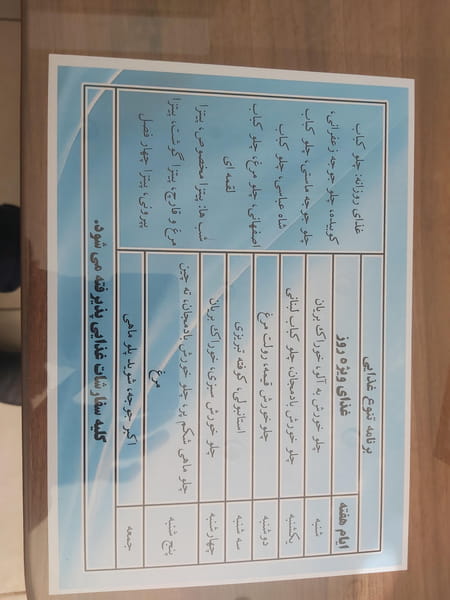 برنامه تنوع غذایی
ایام هفته
غذای ویژه روز
شنبه
چلو خورش به آلو، خوراک بریان
یکشنبه
چلو خورش بادمجان، چلو کباب لبنانی
دوشنبه
چلوخورش قیمه، رولت مرغ
سه شنبه
استانبولی، کوفته تبریزی
چهارشنبه
چلو خورش سبزی، خوراک بریان
پنج شنبه
چلو ماهی شکم پر، چلو خورش بادمجان، ته چین
مرغ
جمعه
اکبر جوجه، شوید پلو ماهی
غذای روزانه: چلو کباب
کوبیده، چلو جوجه زعفرانی،
چلو جوجه ماستی، چلو کباب
شاه عباسی، چلو کباب
اصفهانی، چلو مرغ، چلو کباب
لقمه ای
شب ها: پیتزا مخصوص، پیتزا
مرغ و قارچ، پیتزا گوشت، پیتزا
پپرونی، پیتزا چهار فصل
کلیه سفارشات غذایی پذیرفته می شود.